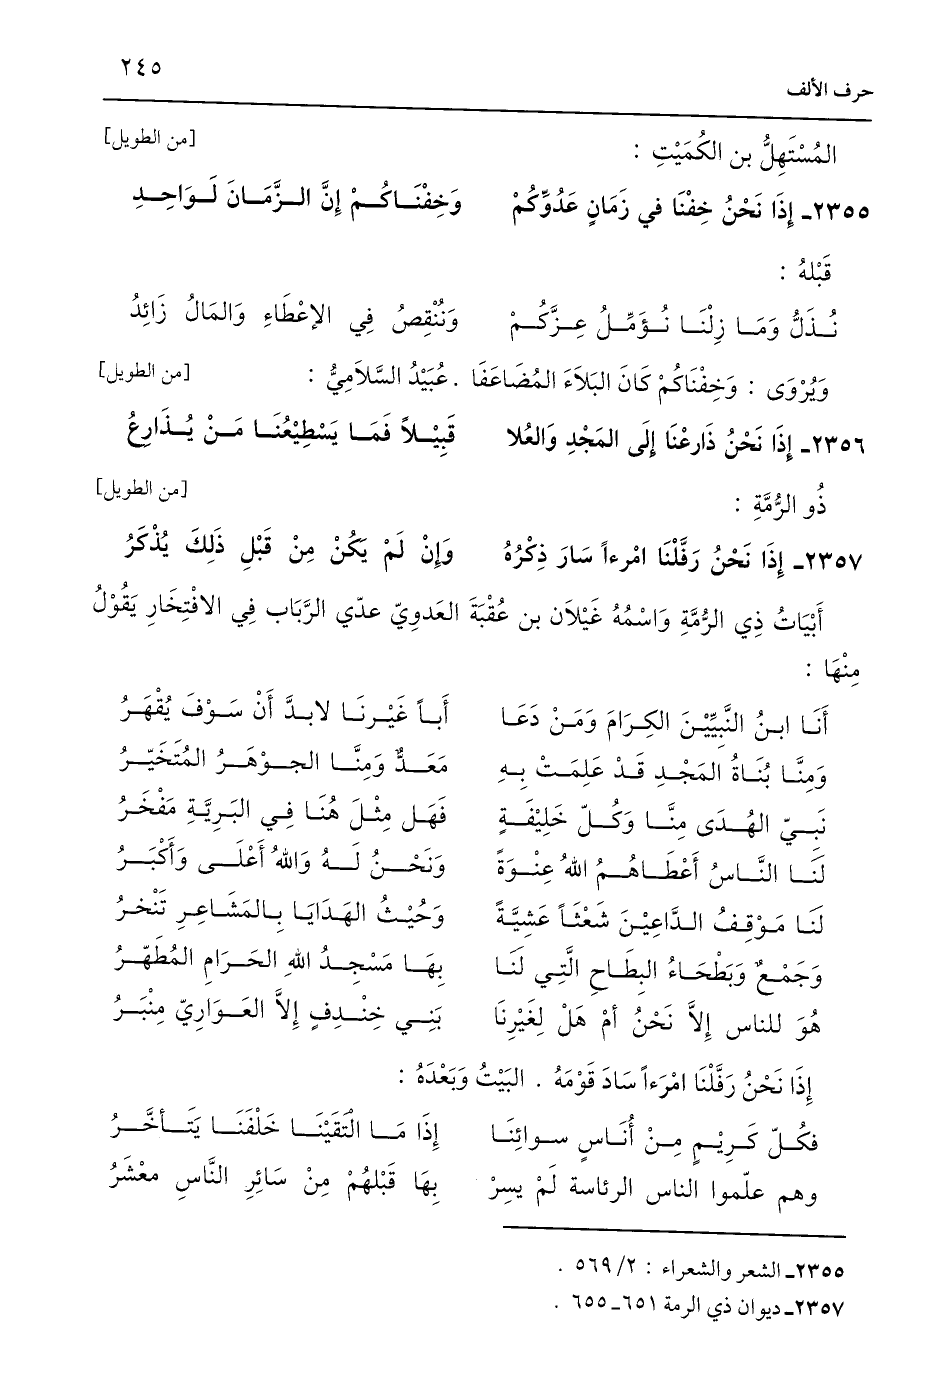 ٢٤٥
حرف الألف
المُسْتَهِلُّ بن الكُمَيْتِ : [من الطويل]
٢٣٥٥ـ إِذَا نَحْنُ خِفْنَا في زَمَانٍ عَدُوِّكُمْ وَخِفْنَاكُمْ إِنَّ الزَّمَانَ لَوَاحِدِ
قَبْلهُ :
نُذَلُّ وَمَا زِلْنَا نُؤَمِّلُ عِزَّكُمْ وَنُنْقِصُ فِي الإعْطَاءِ وَالمَالُ زَائِدُ
وَيُرْوَى : وَخِفْنَاكُمْ كَانَ البَلاَءَ المُضَاعَفَا . عُبَيْدُ السَّلاَمِيُّ : [من الطويل]
٢٣٥٦ـ إِذَا نَحْنُ ذَارعْنَا إِلَى المَجْدِ وَالعُلا قَبِيْلاً فَمَا يَسْطِيْعُنَا مَنْ يُذَارِعُ
ذُو الرُّمَّةِ : [من الطويل]
٢٣٥٧ـ إِذَا نَحْنُ رَفَّلْنَا امْرءاً سَارَ ذِكْرُهُ وَإِنْ لَمْ يَكُنْ مِنْ قَبْلِ ذَلِكَ يُذْكَرُ
أَبْيَاتُ ذِي الرُّمَّةِ وَاسْمُهُ غَيْلاَن بن عُقْبَةَ العَدويّ عدّي الرَّبَاب فِي الافْتِخَارِ يَقُوْلُ
مِنْهَا :
أَنَا ابنُ النَّبِيِّيْنَ الكِرَامَ وَمَنْ دَعَا أَباً غَيْرنَا لابدَّ أَنْ سَوْفَ يُقْهَرُ
وَمِنَّا بُنَاةُ المَجْدِ قَدْ عَلِمَتْ بِهِ مَعَدٌّ وَمِنَّا الجوْهَرُ المُتَخَيَّرُ
نَبيّ الهُدَى مِنَّا وَكُلّ خَلِيْفَةٍ فَهَل مِثْلَ هُنَا فِي البَرِيَّةِ مَفْخَرُ
لَنَا النَّاسُ أَعْطَاهُمُ اللهُ عِنْوَةً وَنَحْنُ لَهُ وَاللهُ أَعْلَى وَأَكْبَرُ
لَنَا مَوْقِفُ الدَّاعِيْنَ شَعْثاً عَشِيَّةً وَحُيْثُ الهَدَايَا بِالمَشَاعِرِ تَنْخرُ
وَجَمْعٌ وَبَطْحَاءُ البِطَاحِ الَّتِي لَنَا بِهَا مَسْجِدُ اللهِ الحَرَامِ المُطَهَّرُ
هُوَ للناسِ إِلاَّ نَحْنُ أمْ هَلْ لِغَيْرِنَا بَنِي خِنْدِفٍ إِلاَّ العَوَاريّ مِنْبَرُ
إِذَا نَحْنُ رَفَّلْنَا امْرَءاً سَادَ قَوْمَهُ . البَيْتُ وَبَعْدَهُ :
فكُلّ كَرِيْمٍ مِنْ أُنَاسٍ سوائِنَا إِذَا مَا التَقَيْنَا خَلْفَنَا يَتَأخَّرُ
وهم علّموا الناس الرئاسة لَمْ يسِرْ بِهَا قَبْلهُمْ مِنْ سَائِرِ النَّاسِ معْشَرُ
٢٣٥٥ـ الشعر والشعراء : ٢/ ٥٦٩ .
٢٣٥٧ـ ديوان ذي الرمة ٦٥١ـ ٦٥٥ .